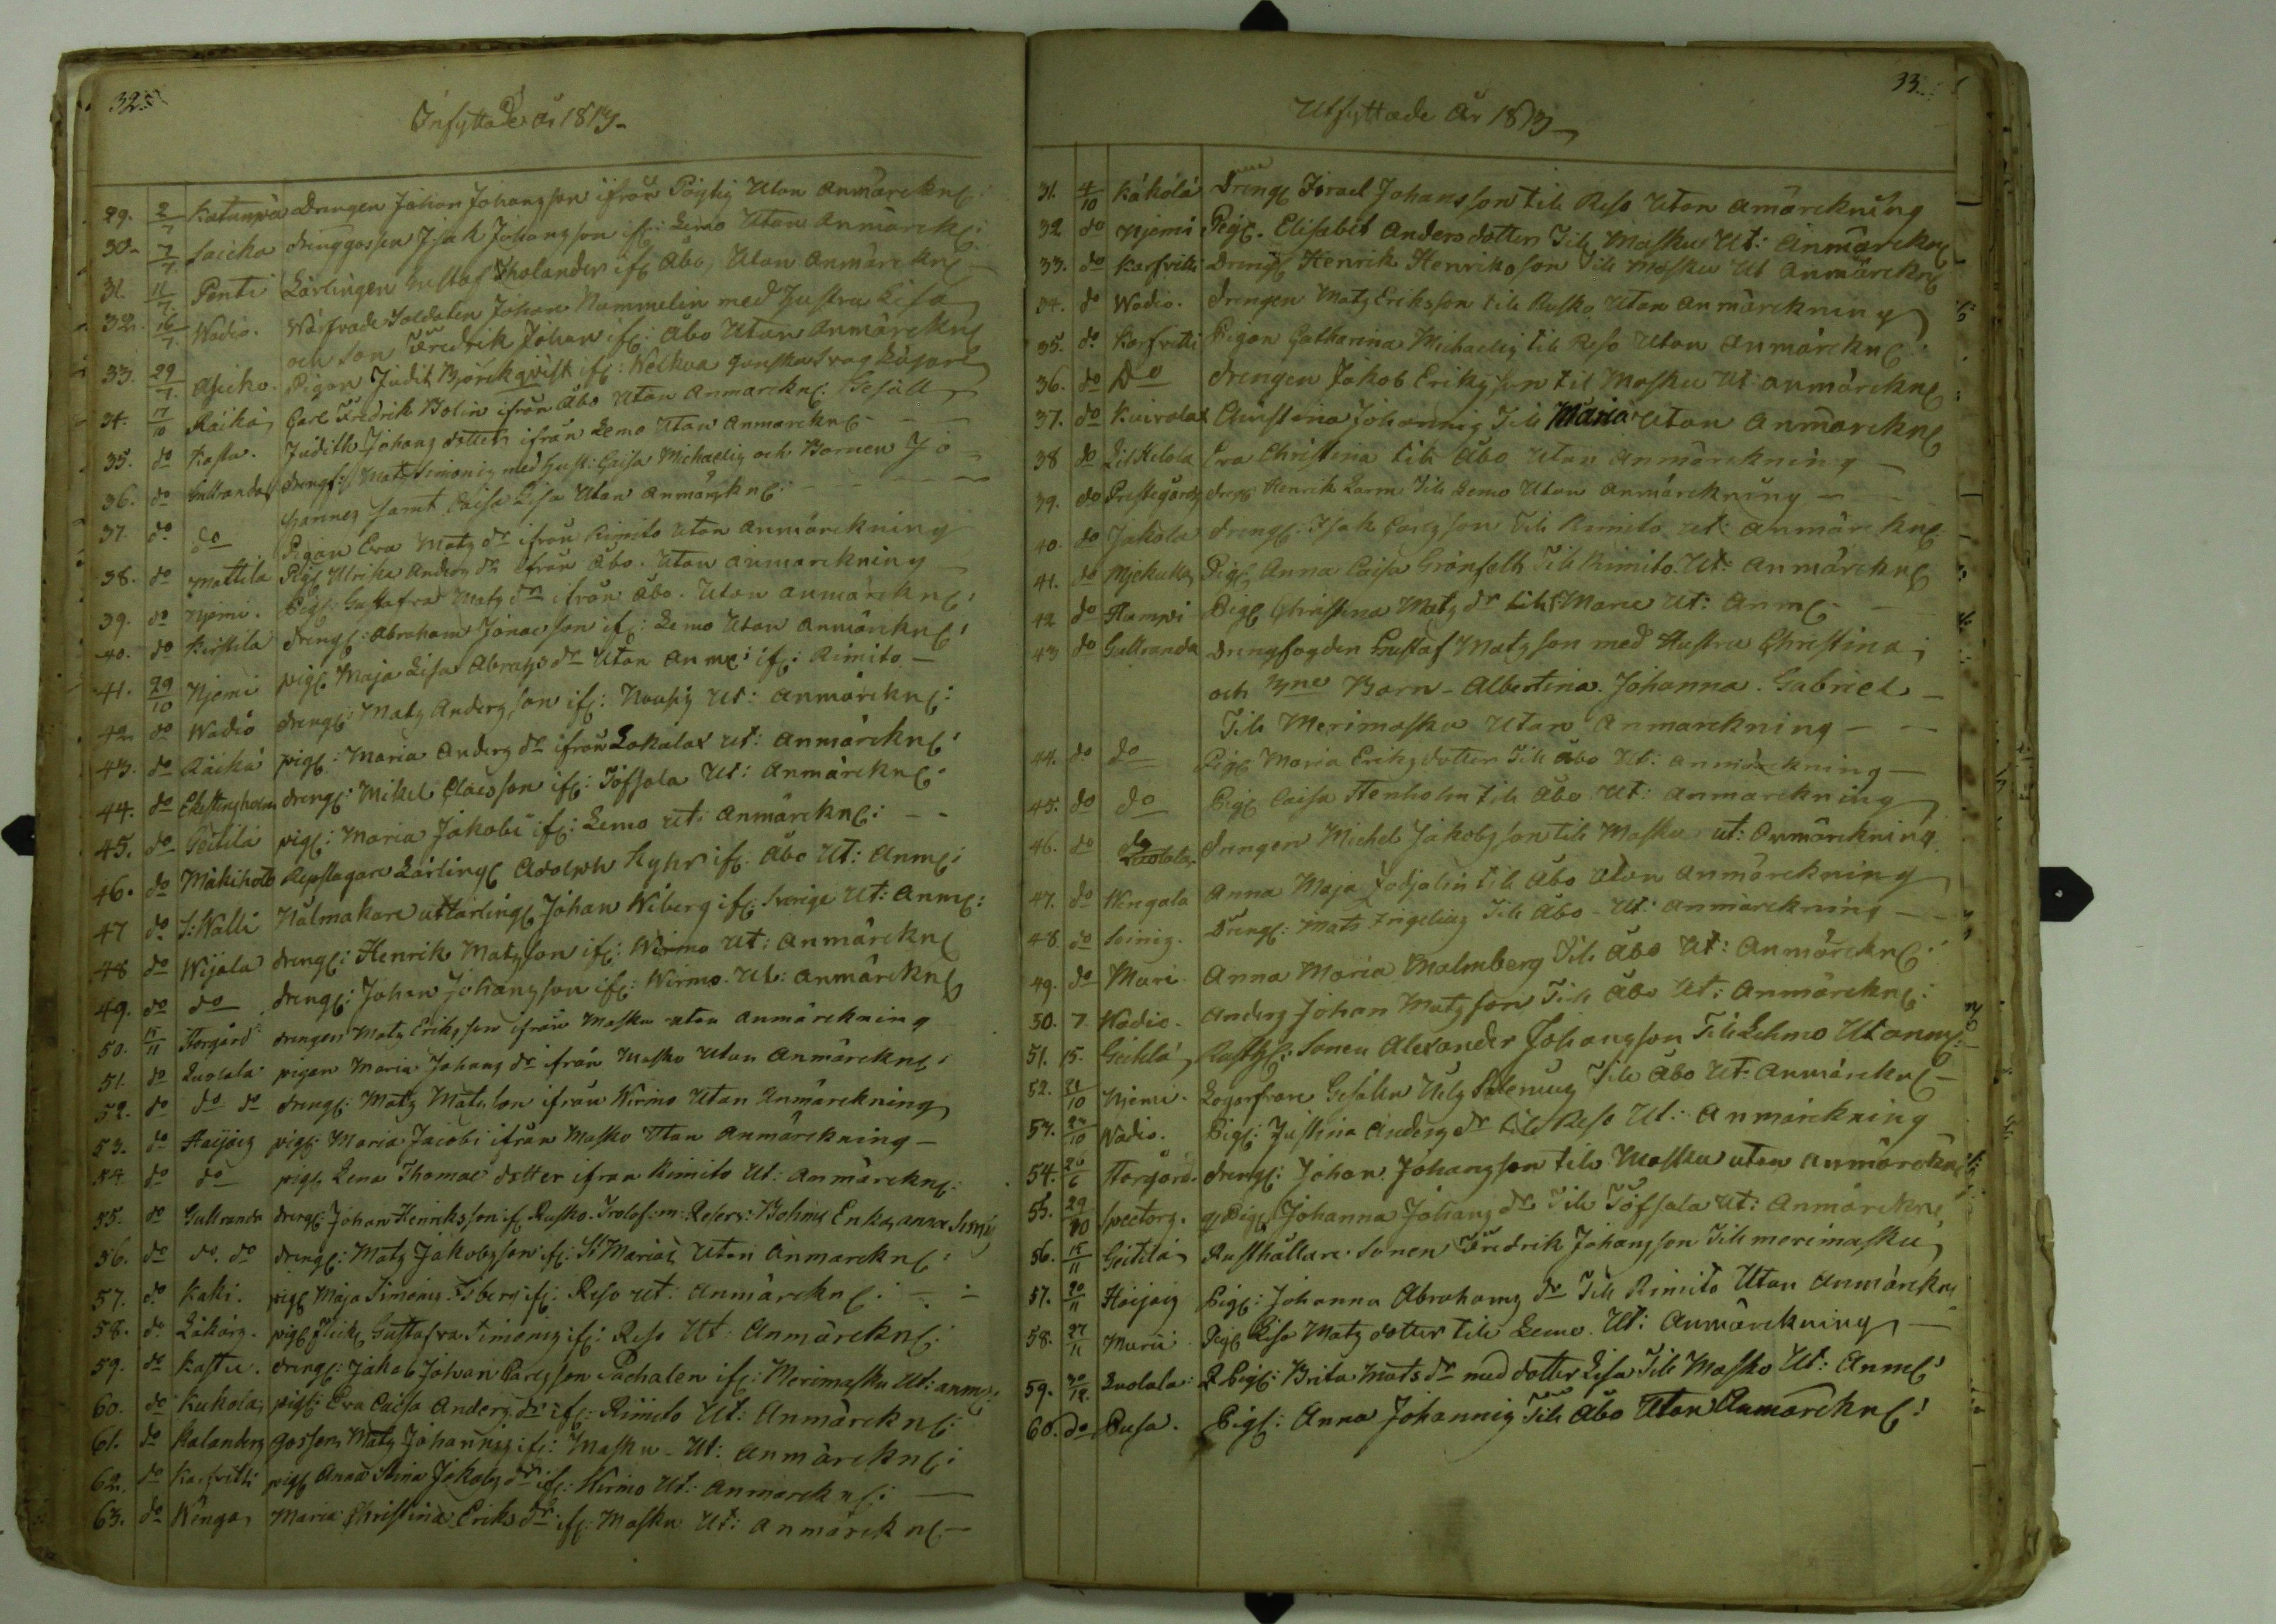 32.
Inflyttade år 1813
29. 2/7 Katunpä Drengen Johan Johansson ifrån Pöytis Utan Anmärckn:
30. 7/7 Saicka drenggossen Isak Johansson ifr: Lemo Utan Anmärck:
31. 11/7 Penti Lärlingen Gustaf Tholander ifr Åbo, Utan Anmärckn
32. 16/7 Wadio. Wärfvade Soldaten Johan Nummelin med Hustru Lisa
och son Fredrik Johan ifr: Åbo Utan Anmärckn
33. 29/7 Pigan Judit Björckqvist ifr: Welkua ganska svag
34. 17/10 Raiko Carl Fredrik Bolin ifrån Åbo Utan Anmärckn: Gesäll
35. do Kastu. Judith Johans dotter ifrån Lemo Utan Anmärckn
36. do Gullranda dreng: Matz Simonis med Hust: Caisa Michaelis och Barnen Jo-
hannes samt Caisa Lisa Utan anmärckn:
37. do do Pigan Eva Matz dr ifrån Rimito Utan anmärckning
38. do Mattila Pig: Ulrika Anders dr ifrån Åbo. Utan anmärckning
39. do Njemi. Pig: Gustafva Matz dr ifrån Åbo. Utan anmärckn:
40. do Kirstila dreng: Abraham Jonasson if: Lemo Utan anmärckn:
41. 29/10 Njemi pig: Maja Lisa Abrahs dr Utan Anm: if: Rimito
42. do Wadio dreng: Matz Andersson if: Nousis Ut: anmärckn:
43. do Räikä pig: Maria Anders dr ifrån Lokalax Ut: anmärckn:
44. do Ekestensholm dreng: Mikel Claësson if: Töfsala Ut: Anmärckn:
45. do Geitila pig: Maria Jakobi if: Lemo Ut: Anmärckn:
46. do Mäkihoto Repslagare Lärling Adolph Kyhr if: Åbo Ut: Anm:
47 do S: Walli Nålmakare utlärling Johan Wiberg if: Sverige Ut: Anm:
48 do Wijala dreng: Henrik Matzson if: Wirmo Ut: anmärckn
49. do do dreng: Johan Johansson if: Wirmo. Ut: anmärckn
50. 15/11 Torgård drengen Matz Eriksson ifrån Masku utan anmärckning
51. do Luolala pigan Maria Johans dr ifrån Masko Utan anmärckn:
52. do do do dreng: Matz Matsson ifrån Wirmo Utan Anmärckning
53. do Haijais pig: Maria Jacobi ifrån Masko Utan Anmärckning
54 do do pig: Lena Thomae dotter ifrån Rimito Ut: Anmärckn:
55. do Gullranda dreng: Johan Henriksson if Rusko. Enka anna
56. do do. do dreng: Matz Jakobsson if: St Mariæ Utan Anmärckn:
57. do Kaki. pig Maja Simons Isberg if: Reso Ut: Anmärckn:
58. do Lakarz. pig Gustafva Simonis if: Reso Ut: Anmärckn:
59. do Kastu. dreng: Jakob Johan Carlsson Pachalen if: Merimasku Ut: anm:
60. do Kukola pig: Eva Caisa Anders dr if: Rimito Ut: Anmärckn:
61. do Kalanders gossen Matz Johannis if: Masku Ut: anmärckn:
62. do Karfvitti pig Anna Stina Jakobs dr if: Wirmo Ut: anmärckn:
63. do Wenga Maria Christina Eriks dr if: Masku Ut: anmärckn:
33.
Utflyttade År 1813
31. 4/10 Käkölä Dreng Israel Johansson till Reso Utan anmärckning
32 do Njemi Pig. Elisabet Andersdotter Till Masku Ut: Anmärckn
33. do Karfvitti Dreng Henrik Henriksson Till Masku Ut Anmärckn
34. do Wadio. drengen Matz Eriksson till Rusko Utan anmärckning
35. do Karfvitti Pigan Catharina Michaelis till Reso Utan anmärckn
36. do Do drengen Jakob Eriksson til Masku Ut: anmärckn
37. do Kuivalax Christina Johannis Till Maria Utan Anmärckn
38 do LilKilola Eva Christina till Åbo Utan anmärckning
39. do Prestegårds dreng Henrik Larm Till Lemo Utan anmärckning
40 do Jakola dreng: Isak Carlsson Till Rimito Ut: anmärckn:
41. do Mjekulla Pig: Anna Caisa Grönfelt Till Rimito. Ut: anmärckn
42 do Hampi Pig Christina Matz dr till St Marie Ut: Anm
43 do Gullranda Drengfogden Gustaf Matzson med Hustru Christina
och 3ne Barn - Albertina. Johanna. Gabriel
Till Merimasku Utan Anmärckning
44. do do Pig Maria Eriks dotter Till Åbo Ut: anmärckning
45. do do Pig Caisa Stenholm till Åbo Ut: anmärckning
46. do do Luolala. drengen Michel Jakobsson till Masku ut: Anmärckning
47. do Wengala Anna Maja till Åbo Utan anmärckning
48 do Soinis. Dreng: Mats Till Åbo Ut: anmärckning
49. do Muri Anna Maria Malmberg Till Åbo Ut: Anmärckn:
50. 7 Wadio. Anders Johan Matzson Till Åbo Ut: Anmärckn:
51. 15. Geitila Rusth: Sonen Alexander Johansson Till Lehmo Ut anm:
52. 21/10 Njemi. Gesällen Till Åbo Ut: Anmärckn
53. 23/10 Wadio. Pig: Justina Anders dr till Reso Ut: Anmärckning
54. 26/6 Torgård. dreng: Johan Johansson till Masku utan anmärckn
55. 29/10 Spectors. Pig Johanna Johans dr Till Töfsala Ut: Anmärckn
56. 15/11 Geitilä Rusthållare Sonen Fredrik Johansson Till merimasku
57. 20/11 Haijais Pig: Johanna Abrahams dr Till Rimito Utan anmärckn
58. 27/11 Murii Pig Lisa Matz dotter till Lemo. Ut: Anmärckning
59. 30/12 Luolala Pig: Brita Mats dr med dotter Lisa Till Masko Ut: Anm:
60. do Pusa. Pig: Anna Johannis Till Åbo Utan Anmärckn: